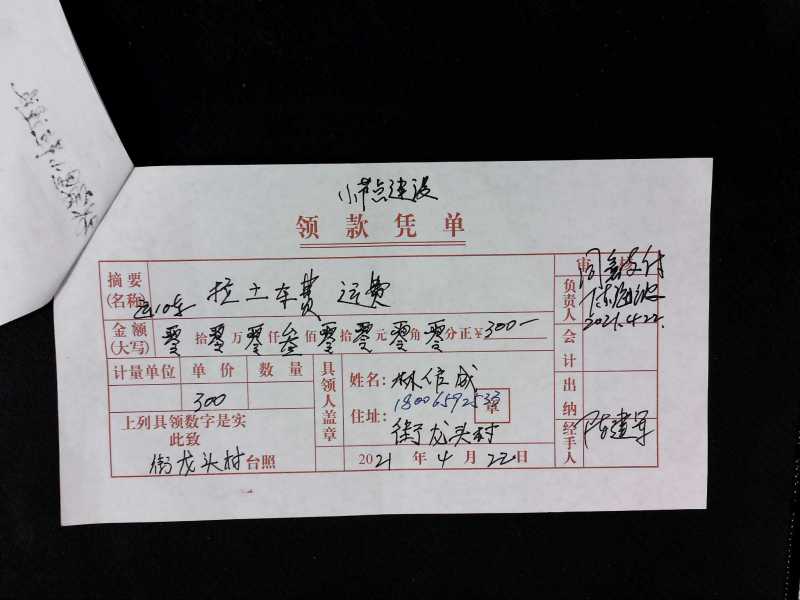 小节点建设
领款凭单
摘要 拉土车费 运费 审核
(名称) 同意支付
负责人
2021.4.22.
金额 零拾零万零仟叁佰零拾零元零角零分正¥300-
(大写)
会计
计量单位 单价 数量 具领人盖章 姓名: 林信成
300 18006592533
住址: 街龙头村 章
出纳
上列具领数字是实
此致
街龙头村台照 2021年4月22日
经手人 陈建军